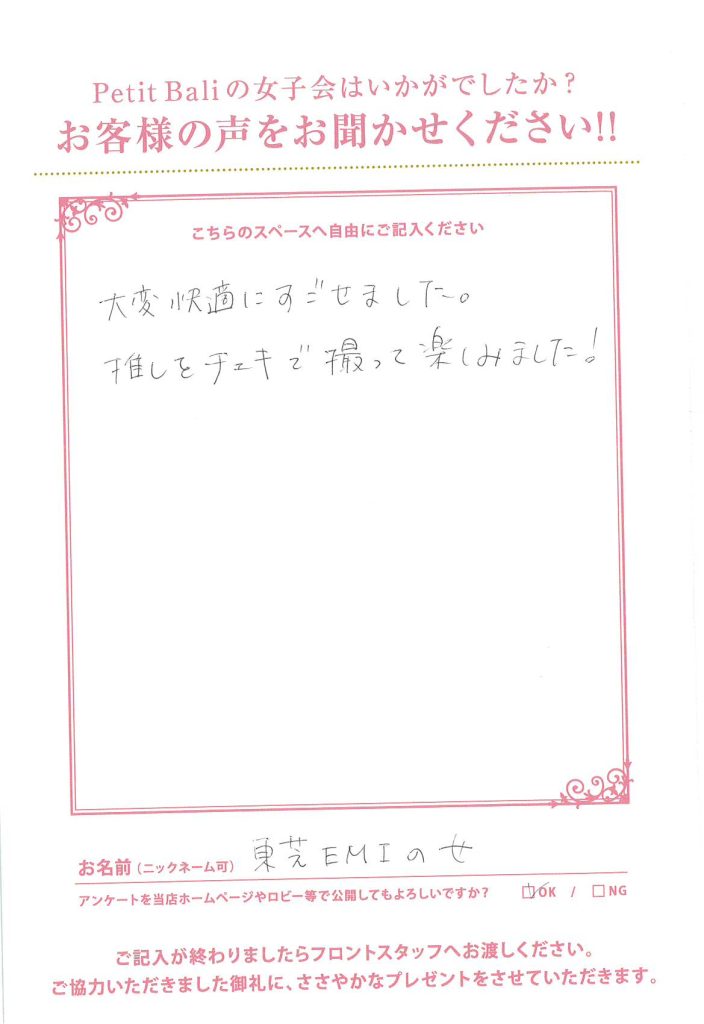 Petit Baliの女子会はいかがでしたか？
お客様の声をお聞かせください!!
こちらのスペースへ自由にご記入ください
大変快適にすごせました。
推しをチェキで撮って楽しみました！
お名前（ニックネーム可） 東芝EMIの女
アンケートを当店ホームページやロビー等で公開してもよろしいですか？ ☑OK / □NG
ご記入が終わりましたらフロントスタッフへお渡しください。
ご協力いただきました御礼に、ささやかなプレゼントをさせていただきます。